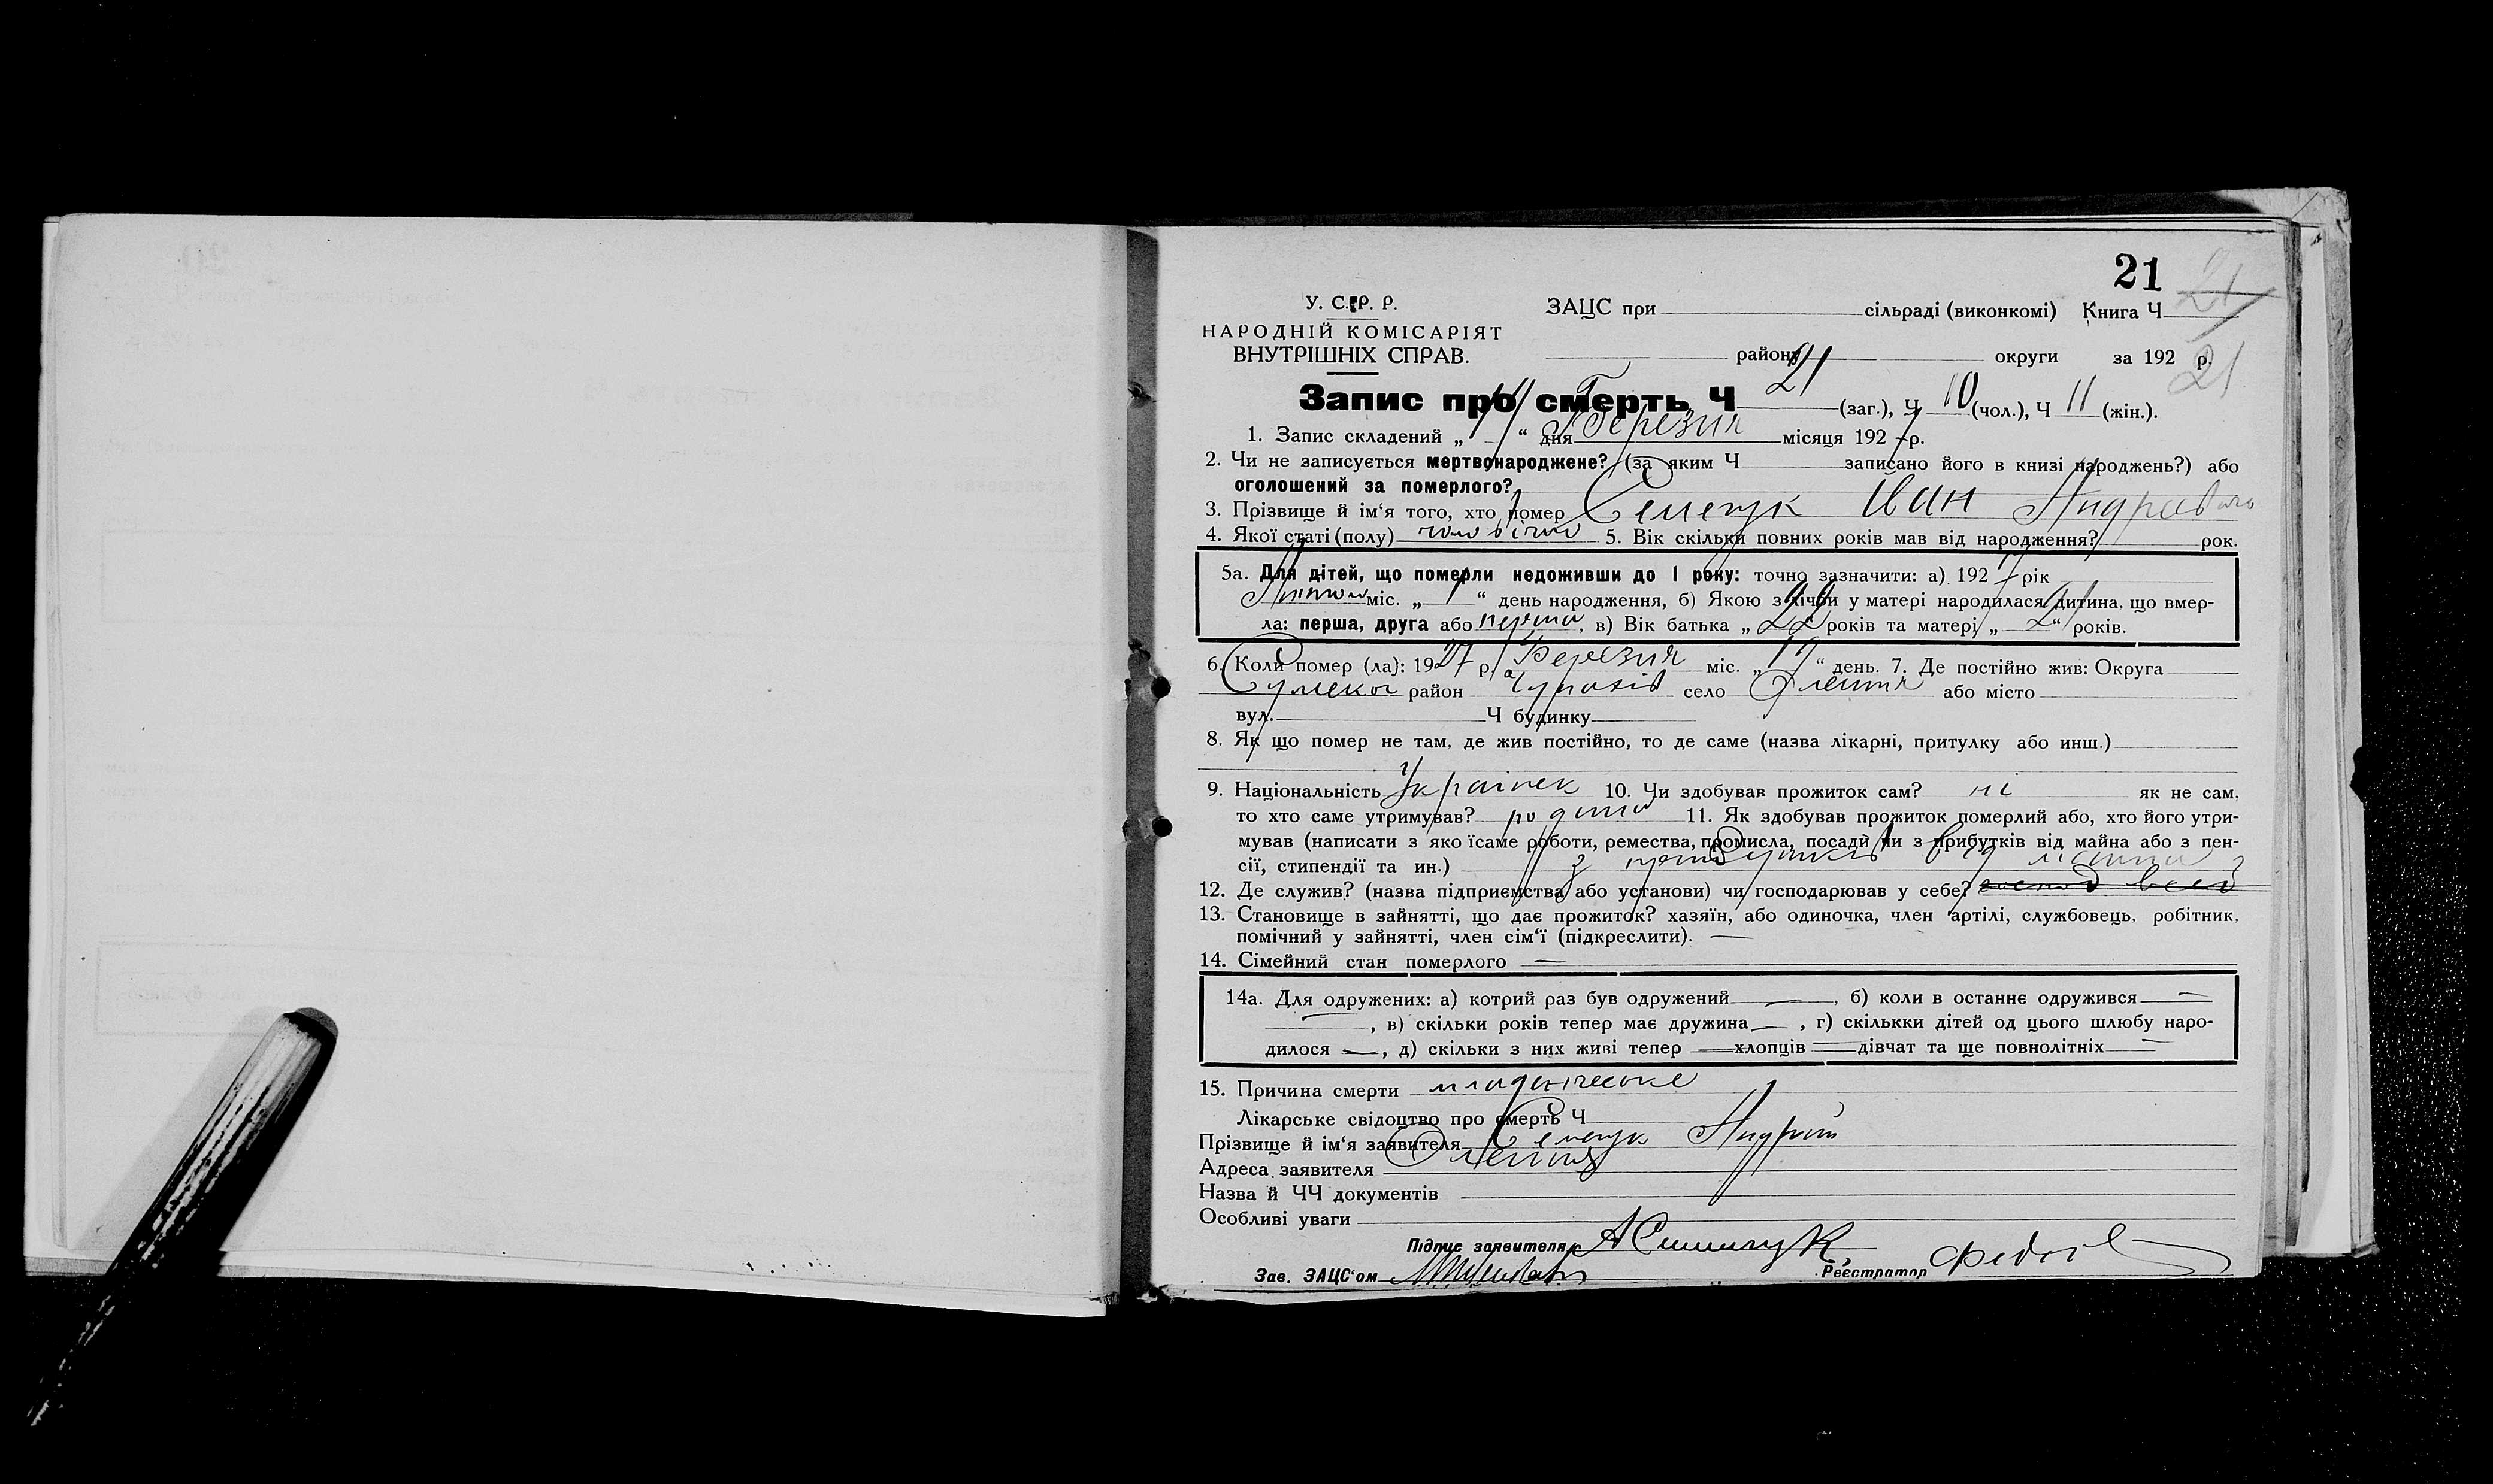 21 21
У. С. Р. Р. ЗАЦС при сільраді (виконкомі) Книга Ч
НАРОДНІЙ КОМІСАРІЯТ
ВНУТРІШНІХ СПРАВ. району округи за 192 р.
21
Запис про смерть Ч 21 (заг.), Ч 10 (чол.), Ч 11 (жін.).
1. Запис складений „ “ дня Березня місяця 1927 р.
2. Чи не записується мертвонароджене? (за яким Ч записано його в книзі народжень?) або
оголошений за померлого?
3. Прізвище й ім‘я того, хто помер Семечук Иван Андреев
4. Якої статі (полу) чоловічої 5. Вік скільки повних років мав від народження? рок.
5а. Для дітей, що померли недоживши до 1 року: точно зазначити: а) 1927 рік
міс. „ “ день народження, б) Якою з лічби у матері народилася дитина, що вмер-
ла: перша, друга або перша, в) Вік батька „22“ років та матері „21“ років.
6. Коли помер (ла): 1927 р. Березня міс. „ “ день. 7. Де постійно жив: Округа
Сумської район село або місто
вул. Ч будинку
8. Як що помер не там, де жив постійно, то де саме (назва лікарні, притулку або инш.)
9. Національність Українек 10. Чи здобував прожиток сам? ні як не сам,
то хто саме утримував? родина 11. Як здобував прожиток померлий або, хто його утри-
мував (написати з яко їсаме роботи, ремества, промисла, посади чи з прибутків від майна або з пен-
сії, стипендії та ин.) з від майна
12. Де служив? (назва підприємства або установи) чи господарював у себе?
13. Становище в зайнятті, що дає прожиток? хазяїн, або одиночка, член артілі, службовець, робітник,
помічний у зайнятті, член сім‘ї (підкреслити). —
14. Сімейний стан померлого —
14а. Для одружених: а) котрий раз був одружений —, б) коли в останнє одружився —
—, в) скільки років тепер має дружина —, г) скількки дітей од цього шлюбу наро-
дилося —, д) скільки з них живі тепер — хлопців — дівчат та ще повнолітніх —
15. Причина смерти младенческе
Лікарське свідоцтво про смерть Ч
Прізвище й ім‘я заявителя Семечук Андрий
Адреса заявителя
Назва й ЧЧ документів
Особливі уваги
Підпис заявителя
Зав. ЗАЦС‘ом Реєстратор